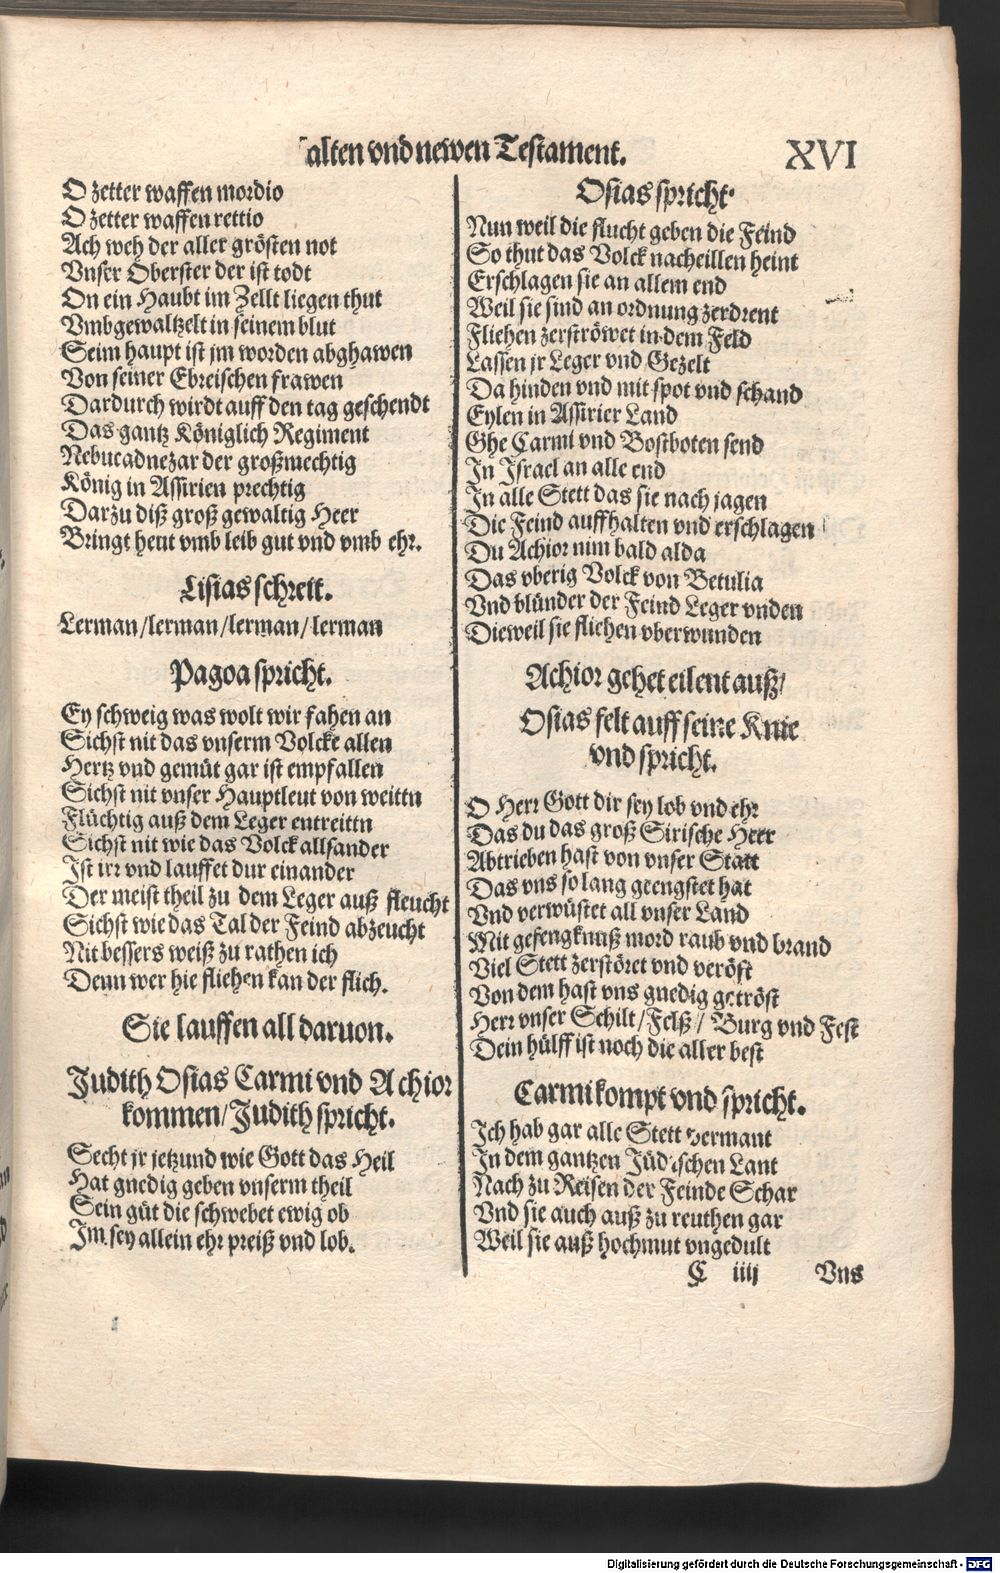 alten vnd newen Testament.
XVI
O zetter waffen mordio
O zetter waffen rettio
Ach weh der aller grösten not
Vnser Oberster der ist todt
On ein Haubt im Zellt liegen thut
Vmbgewaltzelt in seinem blut
Seim haupt ist jm worden abghawen
Von seiner Ebreischen frawen
Dardurch wirdt auff den tag geschendt
Das gantz Königlich Regiment
Nebucadnezar der großmechtig
König in Assirien prechtig
Darzu diß groß gewaltig Heer
Bringt heut vmb leib gut vnd vmb ehr.
Lisias schreit.
Lerman/lerman/lerman/lerman
Pagoa spricht.
Ey schweig was wolt wir fahen an
Sichst nit das vnserm Volcke allen
Hertz vnd gemüt gar ist empfallen
Sichst nit vnser Hauptleut von weittn
Flüchtig auß dem Leger entreittn
Sichst nit wie das Volck allsander
Ist irr vnd lauffet dur einander
Der meist theil zu dem Leger auß fleucht
Sichst wie das Tal der Feind abzeucht
Nit bessers weiß zu rathen ich
Denn wer hie fliehen kan der flich.
Sie lauffen all daruon.
Judith Osias Carmi vnd Achior
kommen/Judith spricht.
Secht jr jetzund wie Gott das Heil
Hat gnedig geben vnserm theil
Sein güt die schwebet ewig ob
Im sey allein ehr preiß vnd lob.
Osias spricht.
Nun weil die flucht geben die Feind
So thut das Volck nacheillen heint
Erschlagen sie an allem end
Weil sie sind an ordnung zerdrent
Fliehen zerströwet in dem Feld
Lassen jr Leger vnd Gezelt
Da hinden vnd mit spot vnd schand
Eylen in Assirier Land
Ghe Carmi vnd Bostboten send
In Israel an alle end
In alle Stett das sie nach jagen
Die Feind auffhalten vnd erschlagen
Du Achior nim bald alda
Das vberig Volck von Betulia
Vnd blünder der Feind Leger vnden
Dieweil sie fliehen vberwunden
Achior gehet eilent auß/
Osias felt auff seine Knie
vnd spricht.
O Herr Gott dir sey lob vnd ehr
Das du das groß Sirische Heer
Abtrieben hast von vnser Statt
Das vns so lang geengstet hat
Vnd verwüstet all vnser Land
Mit gefengknuß mord raub vnd brand
Viel Stett zerstöret vnd veröst
Von dem hast vns gnedig getröst
Herr vnser Schilt/Felß/Burg vnd Fest
Dein hülff ist noch die aller best
Carmi kompt vnd spricht.
Ich hab gar alle Stett vermant
In dem gantzen Jüdischen Lant
Nach zu Reisen der Feinde Schar
Vnd sie auch auß zu reuthen gar
Weil sie auß hochmut vngedult
C iiij
Vns
Digitalisierung gefördert durch die Deutsche Forschungsgemeinschaft - DFG